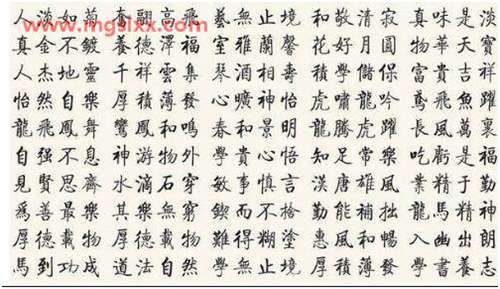 www.mgslxx.com
人淡如菊 奮翮高飛 藝無止境 和敬清寂 真味是淡
真金不鍍 養德澤福 室雅蘭馨 花好月圓 物華天寶
人杰地靈 千祥雲集 琴相壽 學儲 富貴吉祥
怡然自樂 厚積薄發 曠神怡 虎嘯龍吟 鳶飛魚躍
龍飛鳳舞 鸞鳳和鳴 春和景明 龍騰虎躍 長風萬里
自强不息 神游物外 學貴心悟 知足常樂 吃虧是福
見賢思齊 水滴石穿 敏事慎言 漢唐雄風 業精于勤
爲善最樂 其樂無窮 鍥而不捨 勤能補拙 龍馬精神
厚德載物 厚德載物 難得糊塗 惠風和暢 入幽出朗
馬到功成 道法自然 學無止境 厚積薄發 學書養志